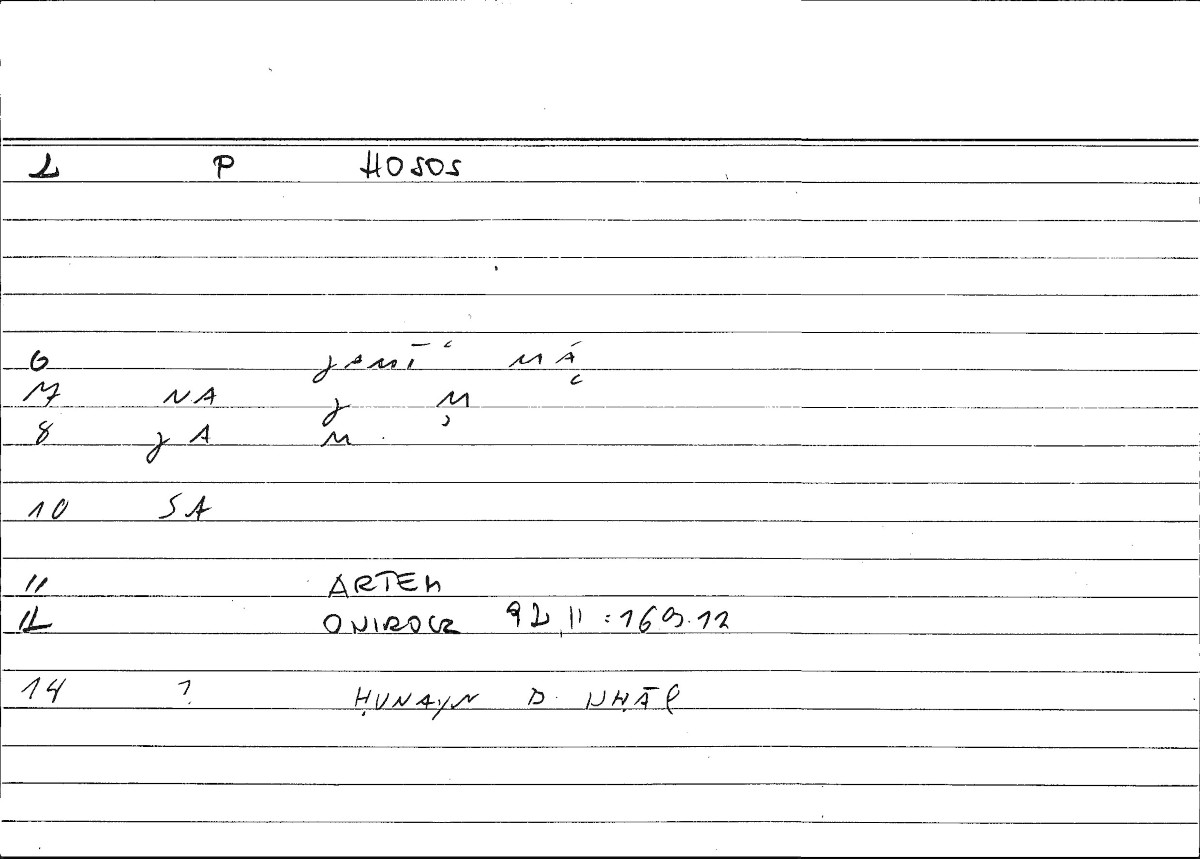 2 P HOSOS
6 jamīʿ mā
7 NA j m
8 j A m.
10 SA
11 ARTEM
12 ONIROCR 92,11:169.12
14 ? ḤUNAYN